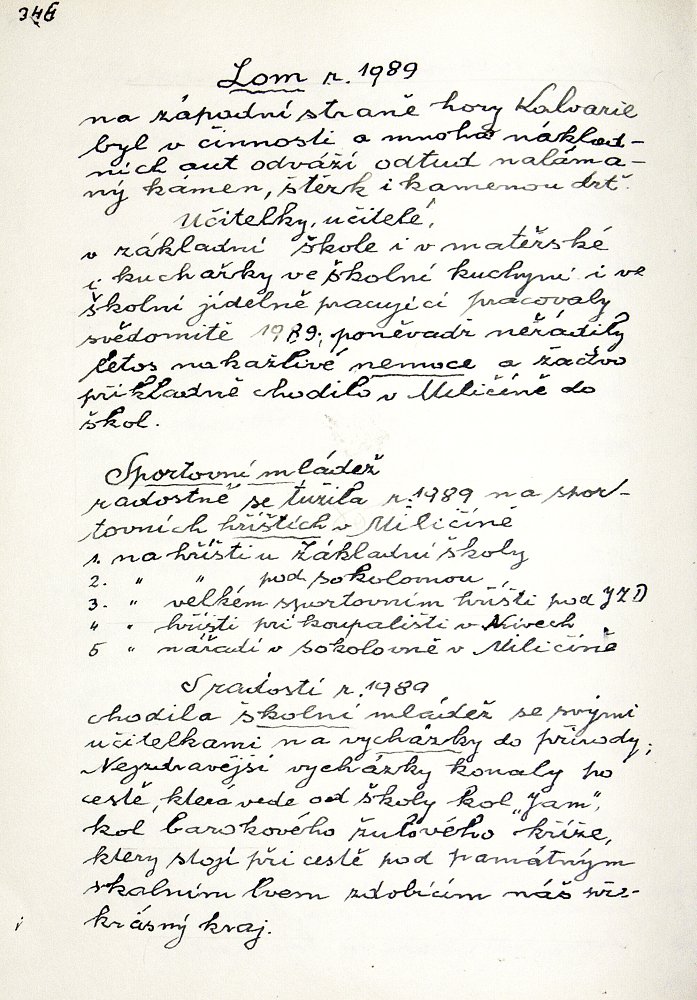 346
Lom r. 1989
na západní straně hory Kalvarie
byl v činnosti a mnoho náklad-
ních aut odváží odtud naláma-
ný kámen, štěrk i kamenou drť.
Učitelky, učitelé,
v základní škole i v mateřské
i kuchařky ve školní kuchyni i ve
školní jídelně pracující pracovaly
svědomitě 1989, poněvadž neřádily
letos nakažlivé nemoce a žactvo
příkladně chodilo v Miličíně do
škol.
Sportovní mládež
radostně se tužila r. 1989 na spor-
tovních hřištích v Miličíně
1. na hřišti u Základní školy
2. " " pod sokolovnou
3. " velkém sportovním hřišti pod JZD
4 " hřišti při koupališti v Nivech
5 " nářadí v sokolovně v Miličíně
S radostí r. 1989
chodila školní mládež se svými
učitelkami na vycházky do přírody;
Nejzdravější vycházky konaly po
cestě, která vede od školy kol "Jam",
kol barokového žulového kříže,
který stojí při cestě pod památným
skalním lvem zdobícím náš pře-
krásný kraj.